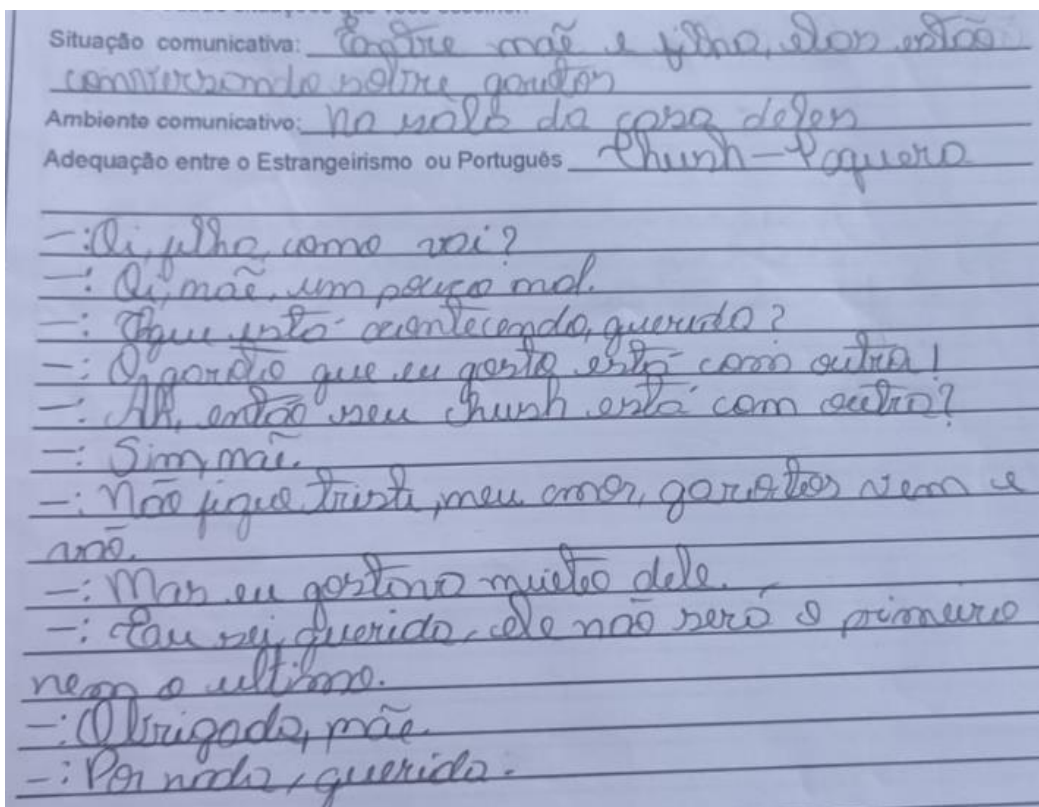 Situação comunicativa: Entre mãe e filho, eles estão
conversando sobre garotos
Ambiente comunicativo: na sala da casa deles
Adequação entre o Estrangeirismo ou Português Chush - Paquera
-: Oi, filho, como vai?
-: Oi, mãe, um pouco mal.
-: O que está acontecendo, querido?
-: O garoto que eu gosto está com outra!
-: Ah, então seu chush está com outro?
-: Sim, mãe.
-: Não fique triste, meu amor, garotos vem e
vão.
-: Mas eu gostava muito dele.
-: Eu sei, querido, ele não será o primeiro
nem o ultimo.
-: Obrigado, mãe.
-: Por nada, querido.